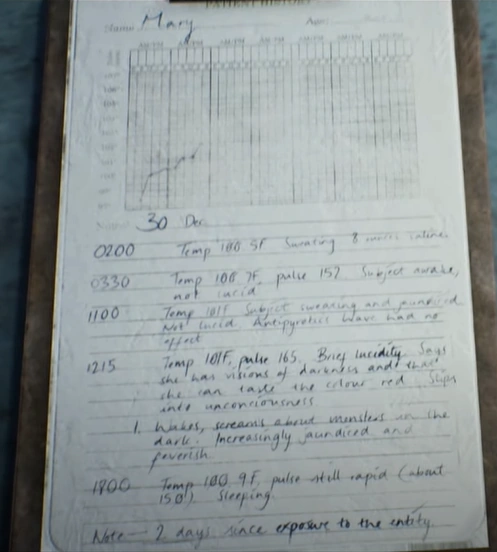 PATIENT HISTORY
Name Mary Age
AM/PM AM/PM AM/PM AM/PM AM/PM AM/PM AM/PM
30 Dec
0200 Temp 100.5F Sweating 8 saline
0330 Temp 100.7F, pulse 152. Subject awake,
not lucid
1100 Temp 101F Subject sweating and jaundiced
Not lucid. Antipyretics have had no
effect
1215 Temp 101F, pulse 165. Brief lucidity. Says
she has visions of darkness and that
she can taste the colour red. Slips
into unconciousness
1. Wakes, screams about monsters in the
dark. Increasingly jaundiced and
feverish.
1800 Temp 100.9F, pulse still rapid (about
150). Sleeping.
Note — 2 days since exposure to the entity.